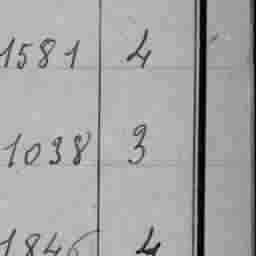 1581 4
1038 3
1846 4